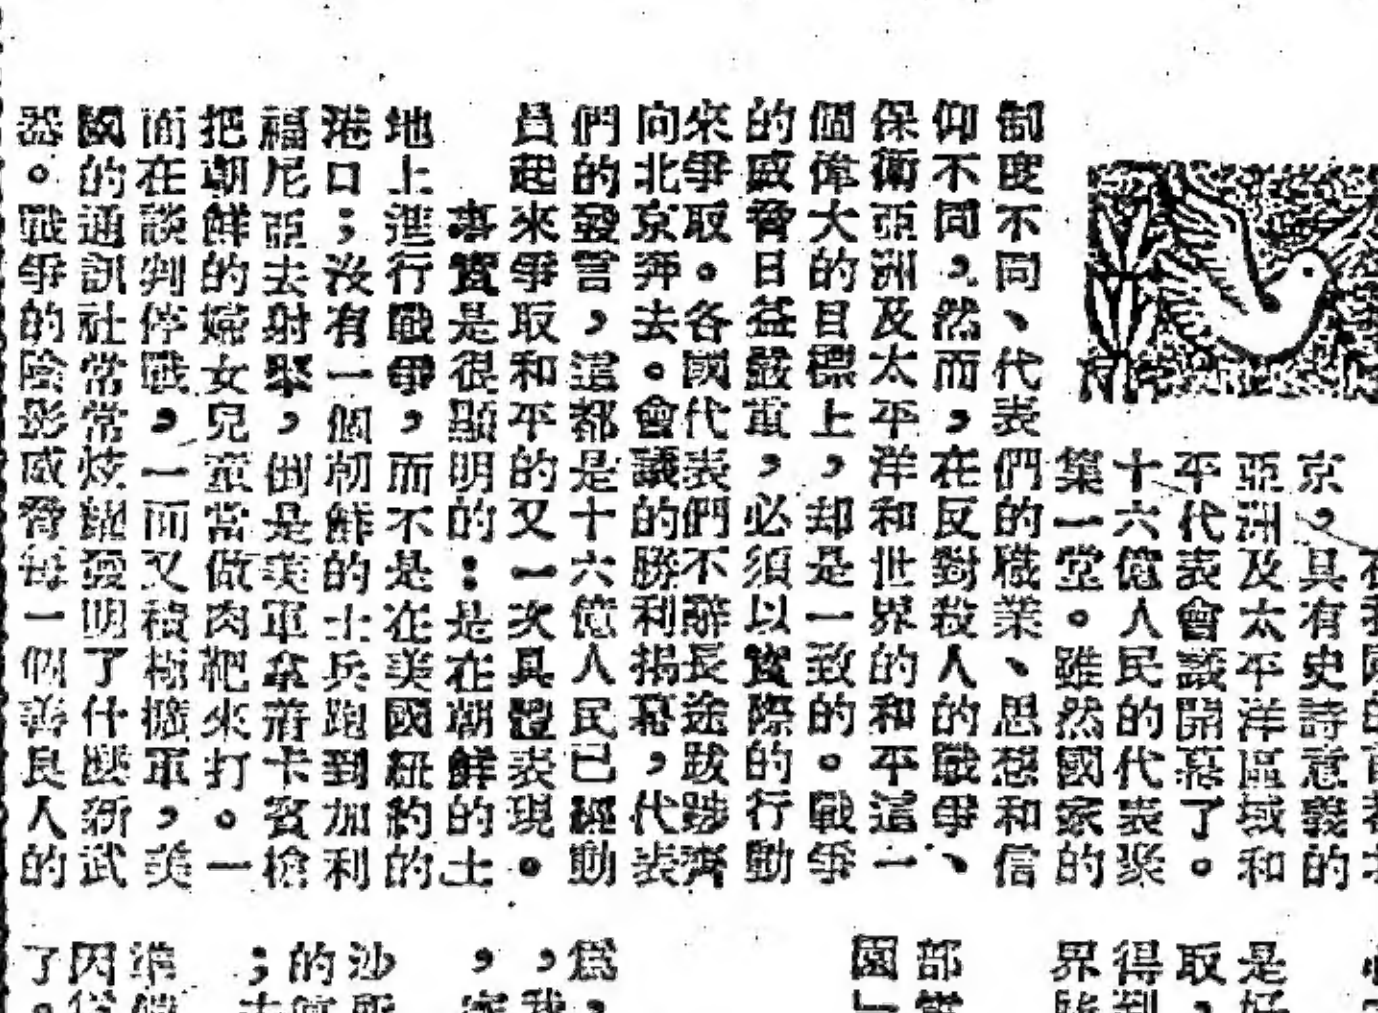 在我國的首都北
京，具有史詩意義的
亞洲及太平洋區域和
平代表會議開幕了。
十六億人民的代表聚
集一堂。雖然國家的
制度不同、代表們的職業、思想和信
仰不同，然而，在反對殺人的戰爭、
保衛亞洲及太平洋和世界的和平這一
個偉大的目標上，却是一致的。戰爭
的威脅日益嚴重，必須以實際的行動
來爭取。各國代表們不辭長途跋涉齊
向北京奔去。會議的勝利揭幕，代表
們的發言，這都是十六億人民已經動
員起來爭取和平的又一次具體表現。
事實是很顯明的：是在朝鮮的土
地上進行戰爭，而不是在美國紐約的
港口；沒有一個朝鮮的士兵跑到加利
福尼亞去射擊，倒是美軍拿着卡賓槍
把朝鮮的婦女兒童當做肉靶來打。一
面在談判停戰，一面又積極擴軍，美
國的通訊社常常炫耀發明了什麼新武
器。戰爭的陰影威脅每一個善良人的
是好
取，
得到
界
部當
園
爲，
，我
，
沙
的
；
準備
因
了。